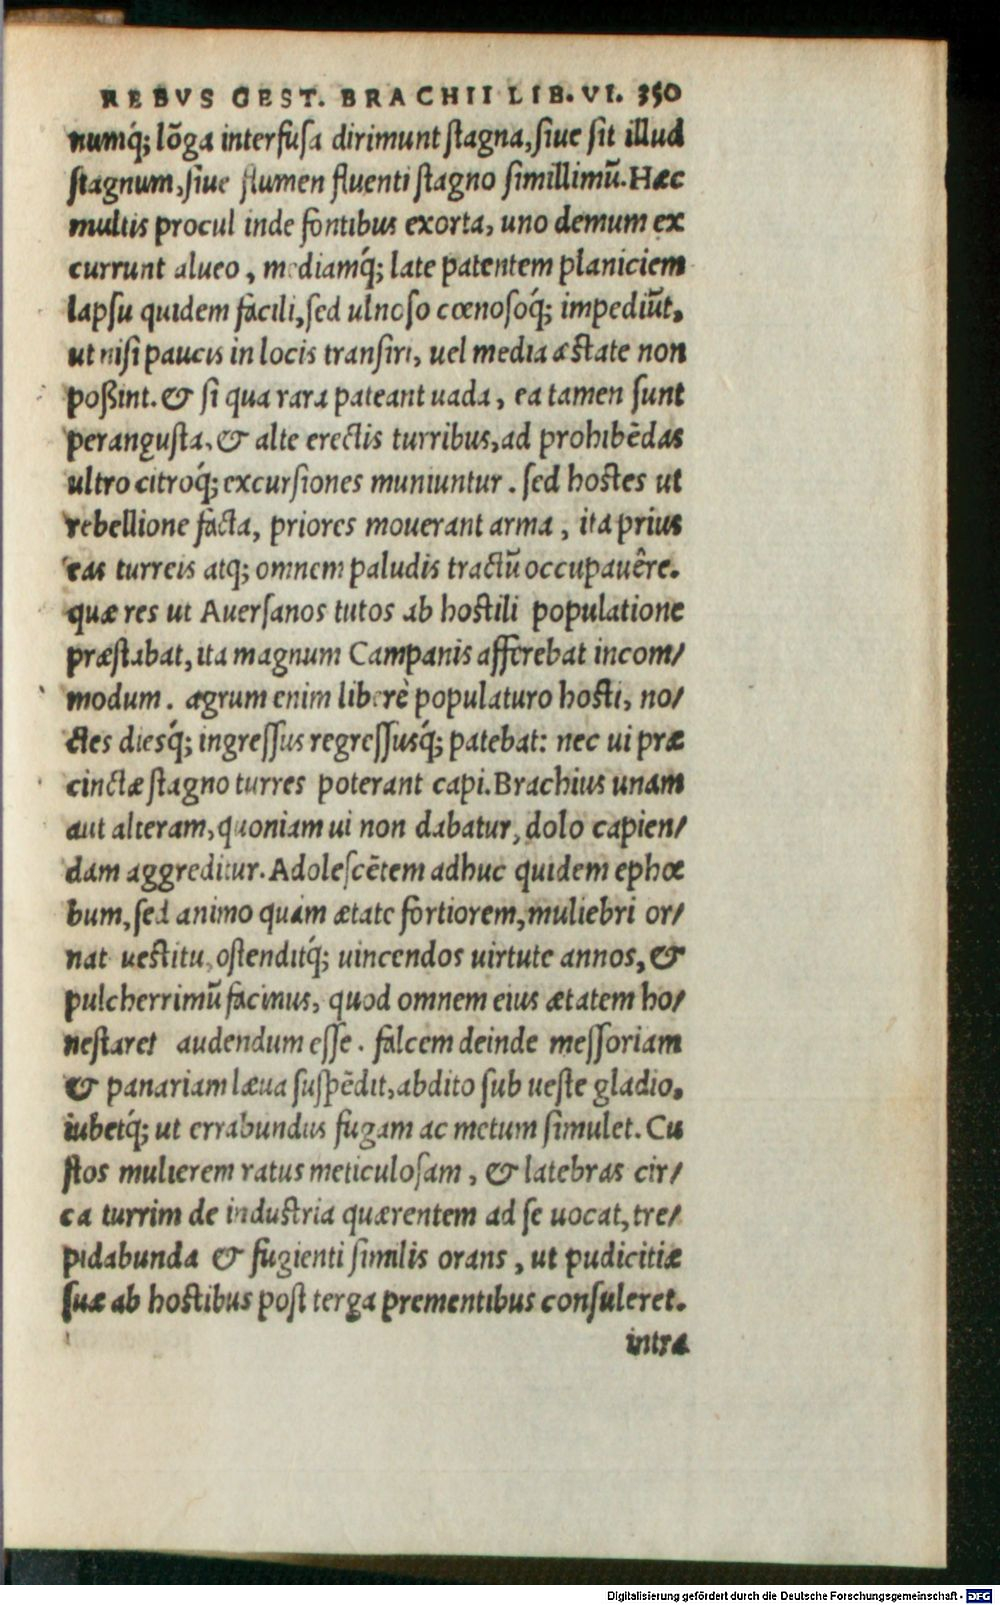 REBVS GEST. BRACHII LIB. VI. 350
numq́; lõga interfusa dirimunt stagna, siue sit illud
stagnum, siue flumen fluenti stagno simillimũ. Hæc
multis procul inde fontibus exorta, uno demum ex
currunt alueo, mediamq́; late patentem planiciem
lapsu quidem facili, sed ulnoso cœnosoq́; impediũt,
ut nisi paucis in locis transiri, uel media æstate non
poßint. & si qua rara pateant uada, ea tamen sunt
perangusta, & alte erectis turribus, ad prohibẽdas
ultro citroq́; excursiones muniuntur. sed hostes ut
rebellione facta, priores mouerant arma, ita prius
eas turreis atq; omnem paludis tractũ occupauêre.
quæ res ut Auersanos tutos ab hostili populatione
præstabat, ita magnum Campanis afferebat incom/
modum. agrum enim liberè populaturo hosti, no/
ctes diesq́; ingressus regressusq́; patebat: nec ui præ
cinctæ stagno turres poterant capi. Brachius unam
aut alteram, quoniam ui non dabatur, dolo capien/
dam aggreditur. Adolescẽtem adhuc quidem ephœ
bum, sed animo quàm ætate fortiorem, muliebri or/
nat uestitu, ostenditq́; uincendos uirtute annos, &
pulcherrimũ facinus, quod omnem eius ætatem ho/
nestaret audendum esse. falcem deinde messoriam
& panariam læua suspẽdit, abdito sub ueste gladio,
iubetq́; ut errabundus fugam ac metum simulet. Cu
stos mulierem ratus meticulosam, & latebras cir/
ca turrim de industria quærentem ad se uocat, tre/
pidabunda & fugienti similis orans, ut pudicitiæ
suæ ab hostibus post terga prementibus consuleret.
intra
Digitalisierung gefördert durch die Deutsche Forschungsgemeinschaft - DFG